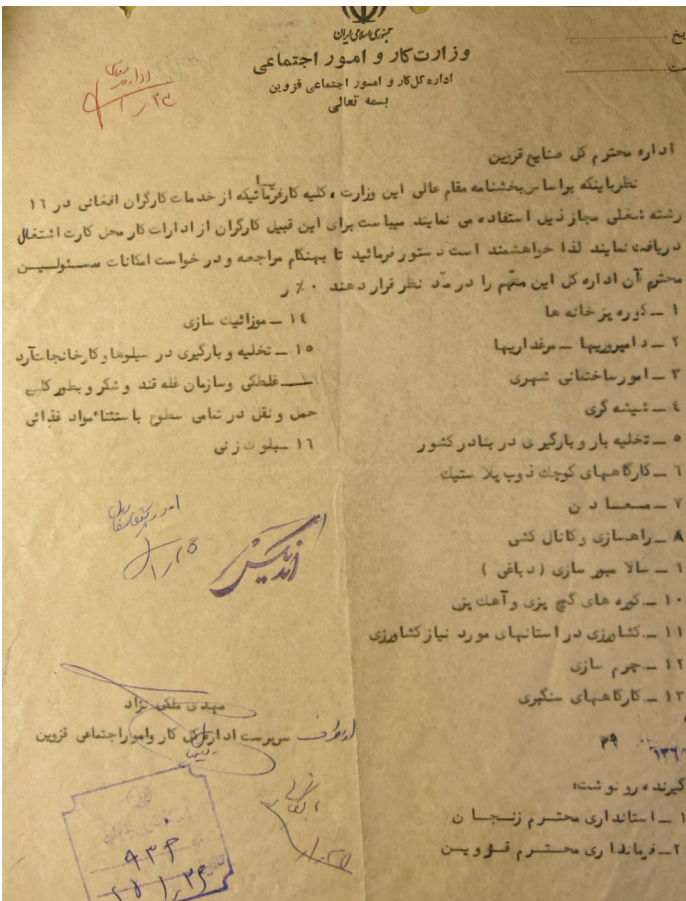 جمهوری اسلامی ایران
وزارت کار و امور اجتماعی
اداره کل کار و امور اجتماعی قزوین
بسمه تعالی
اداره محترم کل صنایع قزوین
نظر باینکه براساس بخشنامه مقام عالی این وزارت ، کلیه کارفرمائیکه از خدمات کارگران افغانی در ۱۶
رشته شغلی مجاز ذیل استفاده می نمایند میباست برای این قبیل کارگران از ادارات کار محل کارت اشتغال
دریافت نمایند لذا خواهشمند است دستور فرمائید تا بهنگام مراجعه و درخواست امکانات مسئولیـن
محترم آن اداره کل این مهم را در مد نظر قرار دهند ۰ ٪ ر
۱ ــ کوره پزخانه ها
۲ ــ دامپروریها ــ مرغداریها
۳ ــ امور ساختمانی شهری
۴ ــ شیشه گری
۵ ــ تخلیه بار و بارگیری در بنادر کشور
۶ ــ کارگاههای کوچک ذوب پلاستیک
۷ ــ معـادن
۸ ــ راهسازی و کانال کشی
۹ ــ سالامبور سازی ( دباغی )
۱۰ ــ کوره های گچ پزی و آهک پزی
۱۱ ــ کشاورزی در استانهای مورد نیاز کشاورزی
۱۲ ــ چرم سازی
۱۳ ــ کارگاههای سنگبری
۱۴ ــ موزائیک سازی
۱۵ ــ تخلیه و بارگیری در سیلوها و کارخانجات آرد
غلطکی وسازمان غله قند و شکر و بطور کلی
حمل و نقل در تمامی سطوح باستثناء مواد غذائی
۱۶ ــ بلوک زنی
مهدی ملکی نژاد
سرپرست اداره کل کار وامور اجتماعی قزوین
گیرنده رونوشت:
۱ ــ استانداری محتـرم زنجـان
۲ــ فرمانداری محتـرم قـزویـن